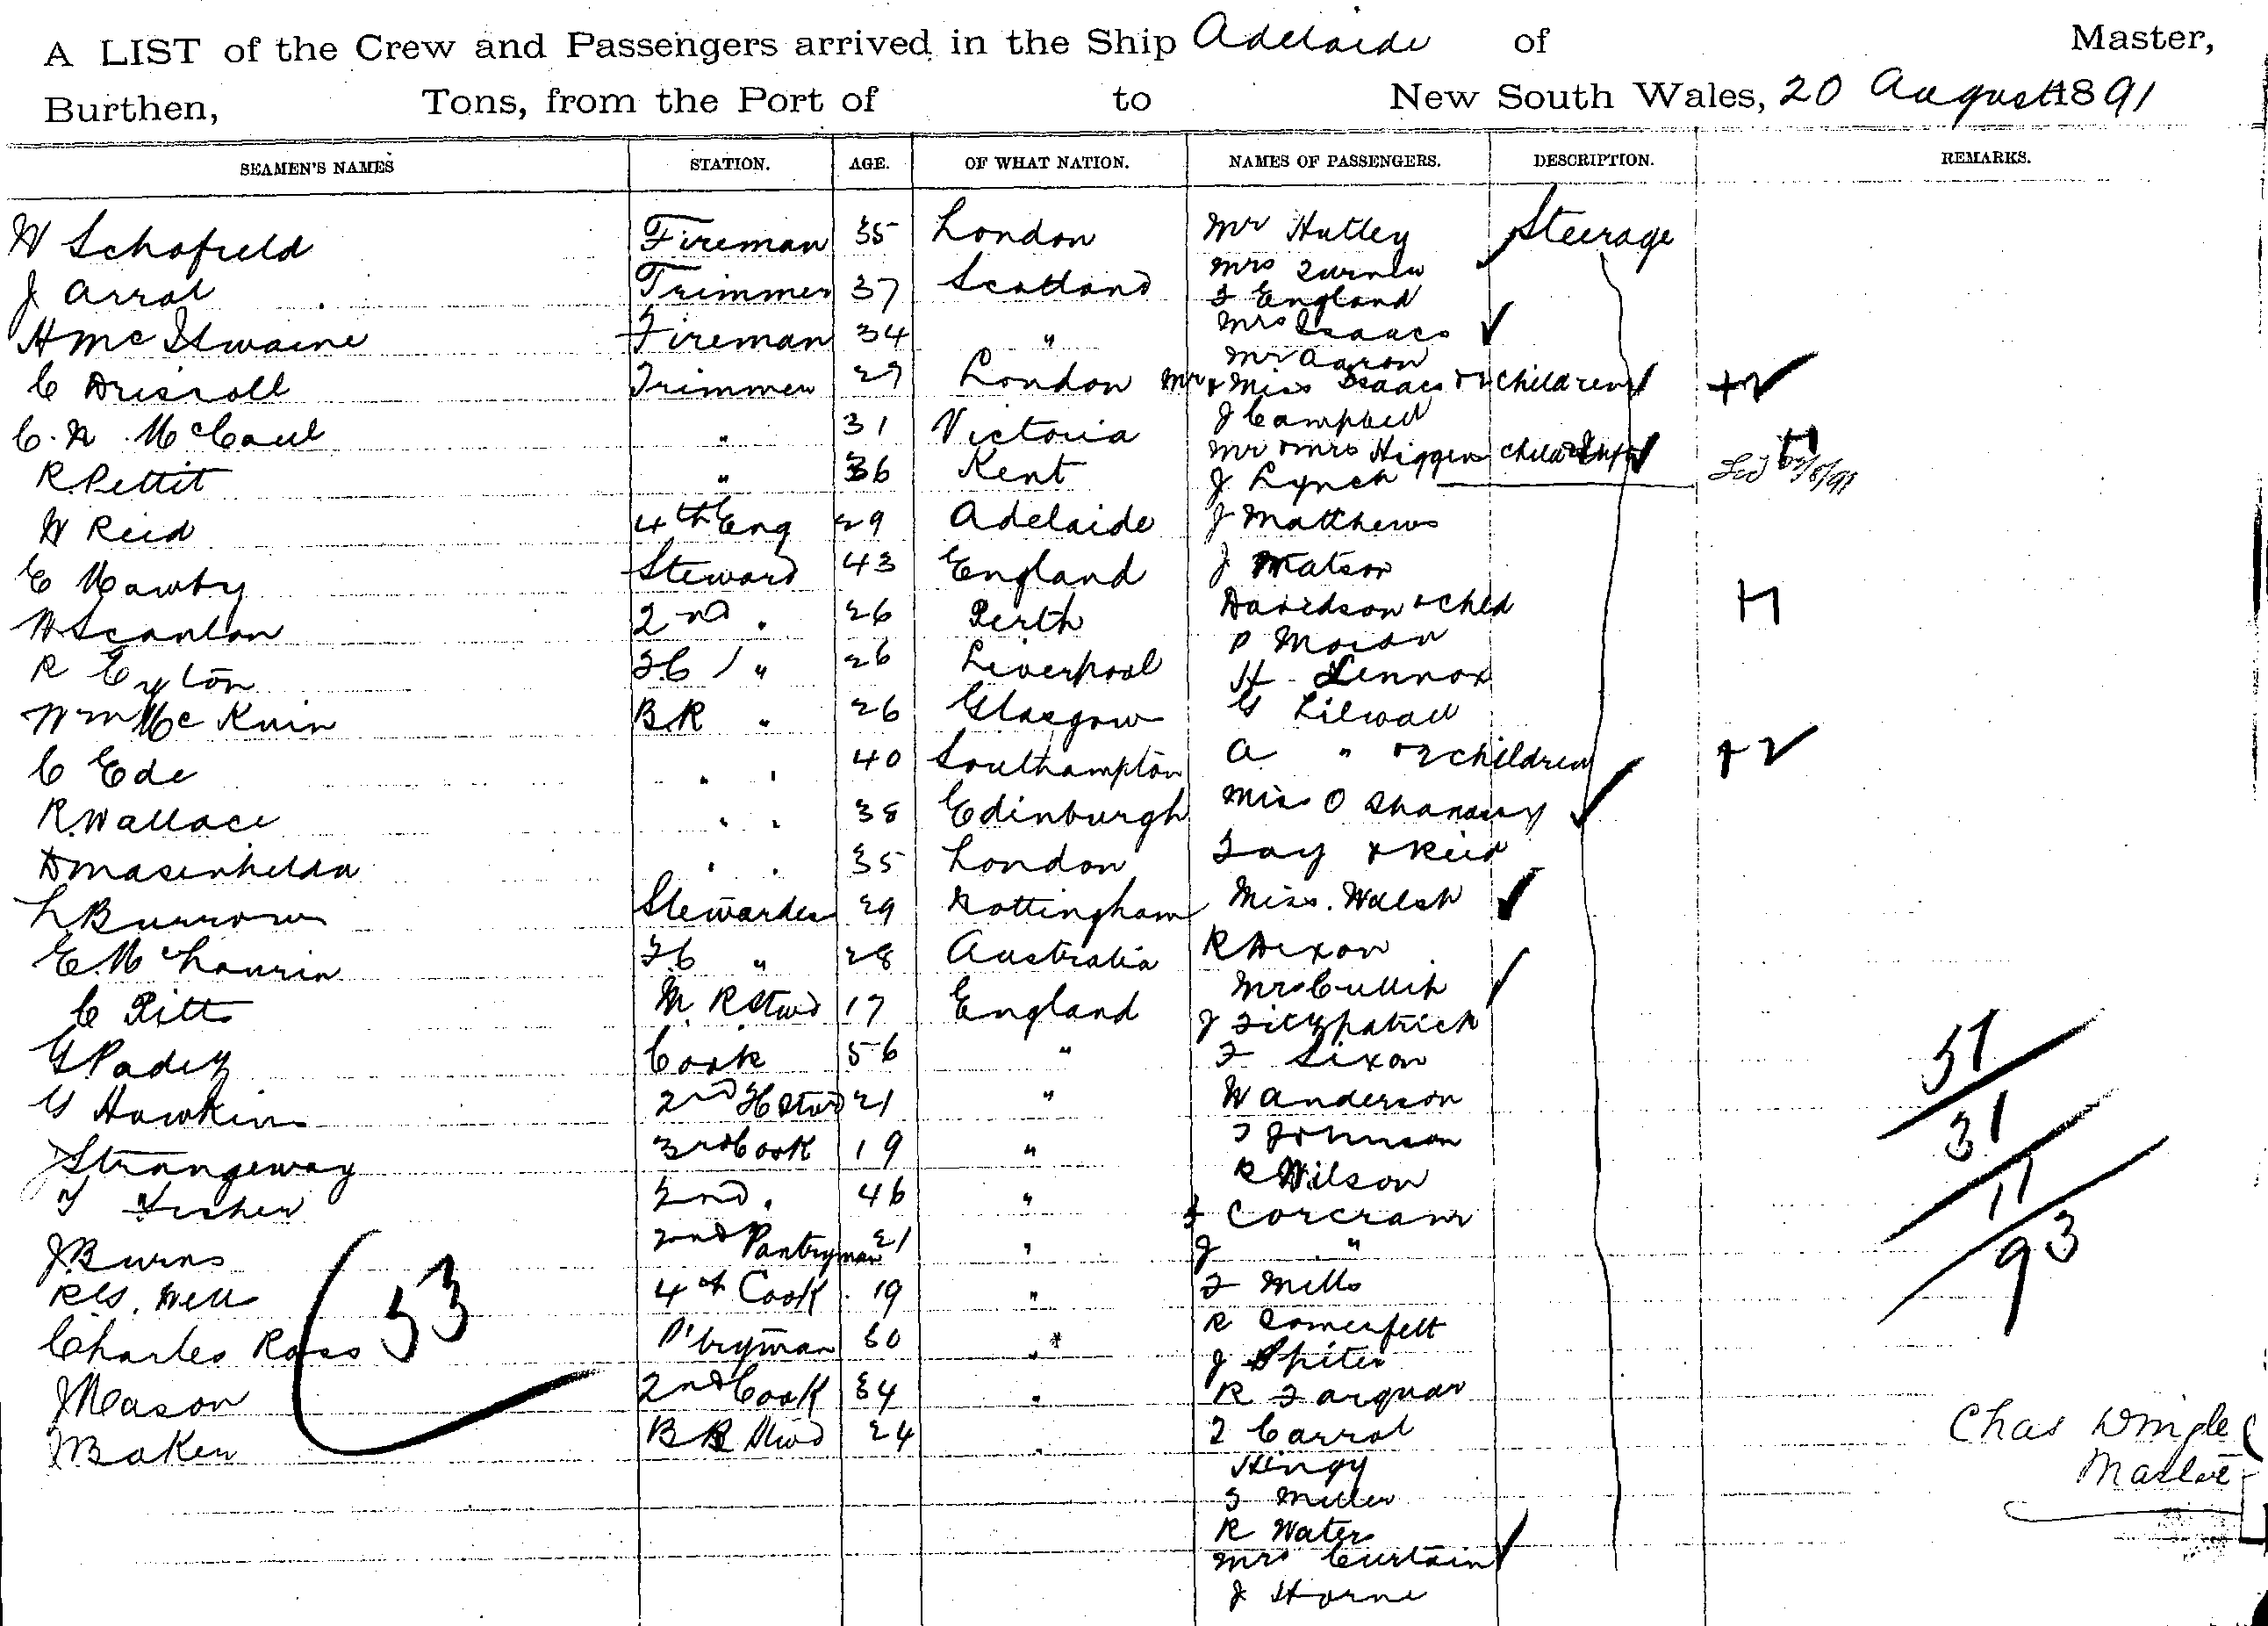 A LIST of the Crew and Passengers arrived in the Ship Adelaide of Master,
Burthen, Tons, from the Port of to New South Wales, 20 August 1891
SEAMEN'S NAMES STATION. AGE. OF WHAT NATION. NAMES OF PASSENGERS. DESCRIPTION. REMARKS.
W Schofield Fireman 35 London Mr Hutley Steerage
Mrs Turner
J Arrol Trimmer 37 Scotland F England
H Mc Ilwaine Fireman 34 " Mrs Isaacs
Mr Aaron
C Driscoll Trimmer 29 London Mr & Miss Isaacs & 2 children +2
J Campbell
C. N. McCaul " 31 Victoria Mr & Mrs Higgens child &
R. Pettit " 36 Kent J Lynch
W Reid 4th Eng 29 Adelaide J Matthews
E Mawby Steward 43 England J Matson
W Scanlan 2nd " 26 Perth Davidson & child H
P Moran
R Eyton F.C / " 26 Liverpool H Lennox
Wm Mc Kuin B.R " 26 Glasgow G Lilwall
C Ede " " 40 Southampton A " & 2 children +2
R. Wallace " " 38 Edinburgh Miss O Shanassy
D Masenhelda " " 35 London Fay & Reid
L Burrows Stewardess 29 Nottingham Miss. Walsh
E. McLaurin F.C " 28 Australia R Dixon
Mrs Cullip
C Pitts M. R Stwd 17 England J Fitzpatrick
G Padey Cook 56 " F Dixon
G Hawkins 2nd Stwd 21 " W Anderson
J Strangeway 3rd Cook 19 " J Johnson
R Wilson
T Fisher 2nd " 46 " Corcoran
J Burns 2nd Pantryman 21 " J "
R.G. Well 4th Cook 19 " F Mills
R Somerfelt
Charles Ross P'tryman 50 " J Spiter
J Mason 2nd Cook 34 " R Farquar
J Baker B R Stwd 24 " T Carrol
Hingy
S Miller
R Waters
Mrs Curtain
J Horne
53
51
31
11
93
Chas
Master